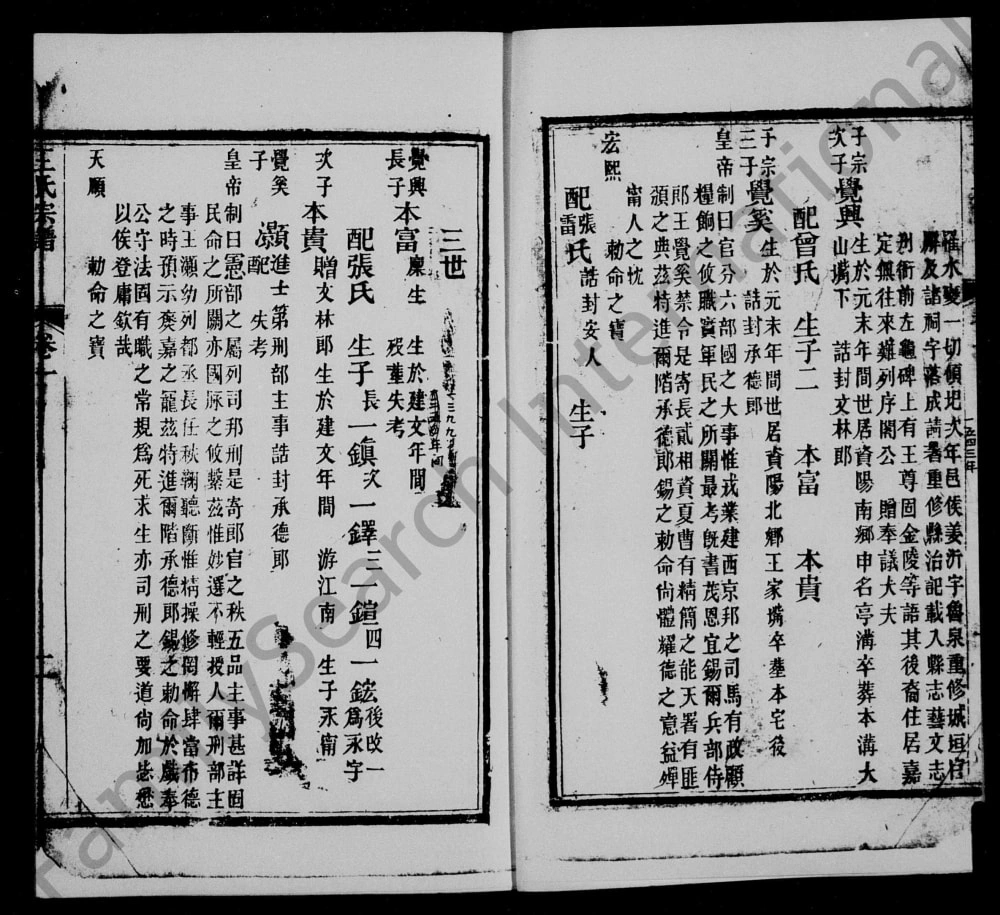 羅水變一切傾圮次年邑侯姜沂字魯泉重修城垣官
廨及諸祠宇落成請著重修縣治記載入縣志藝文志
州衙前左龜碑上有王尊固金陵等語其後裔住居嘉
定無往來難列序閣公 贈奉議大夫
子宗
次子覺興 生於元末年間世居資陽南鄉申名亭溝卒葬本溝大
山嘴下 誥封文林郎
配曾氏 生子二 本富 本貴
子宗
三子覺奚 生於元末年間世居資陽北鄉王家嘴卒塟本宅後
誥封承德郎
皇帝制曰官分六部國之大事惟戎業建西京邦之司馬有政顧
糧餉之攸職實軍民之所關最考旣書茂恩宜錫爾兵部侍
郎王覺奚禁令是寄長貳相資夏曹有精簡之能天署有匪
頒之典茲特進爾階承德郎錫之勅命尙體耀德之意益殫
甯人之忱
宏熙 勅命之寶
配張雷氏 誥封安人 生子
三世
覺興
長子本富 廩生 生於建文年間
歿塟失考
配張氏 生子長一鎮次一鐸三一鎧四一鋐後改一爲永字
次子本貴 贈文林郎生於建文年間 游江南 生子永甯
覺奚
子 灝進士第刑部主事誥封承德郎
配 失考
皇帝制曰憲部之屬列司邦刑是寄郎官之秩五品主事甚詳固
民命之所關亦國脉之攸繫茲惟妙選不輕授人爾刑部主
事王灝幼列都丞長任秋鞫聽斷惟精操修罔懈肆當布德
之時預示褒嘉之寵茲特進爾階承德郎錫之勅命於戲奉
公守法固有職之常規爲死求生亦司刑之要道尙加恭懋
以俟登庸欽哉
天順 勅命之寶
王氏宗譜
卷一
FamilySearch International